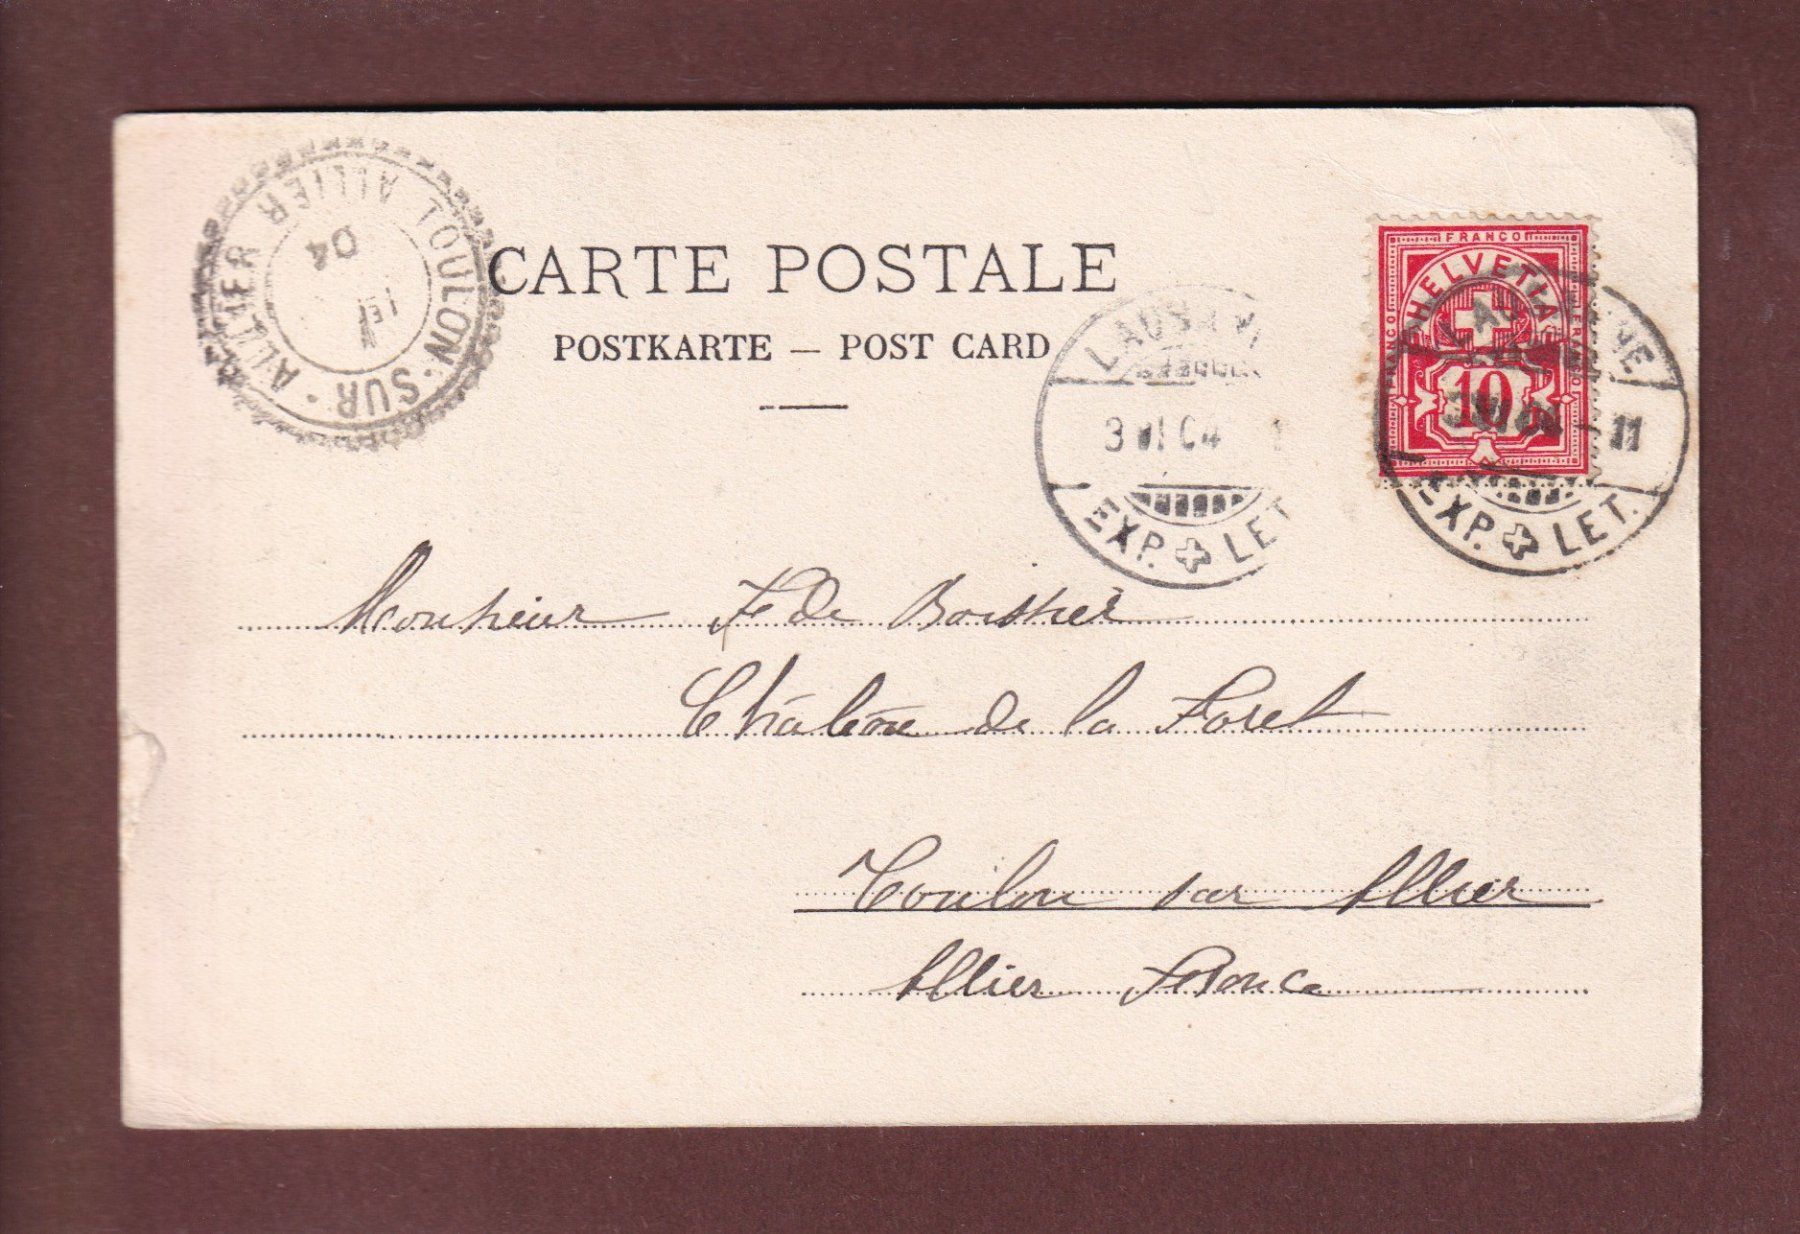 TOULON-SUR-ALLIER
ALLIER
04
CARTE POSTALE
POSTKARTE — POST CARD
FRANCO
HELVETIA
10
LAUSANNE
3 VI 04
EXP. LET.
LAUSANNE
11
EXP. LET.
Monsieur F de
Château de la Foret
Toulon sur Allier
Allier France